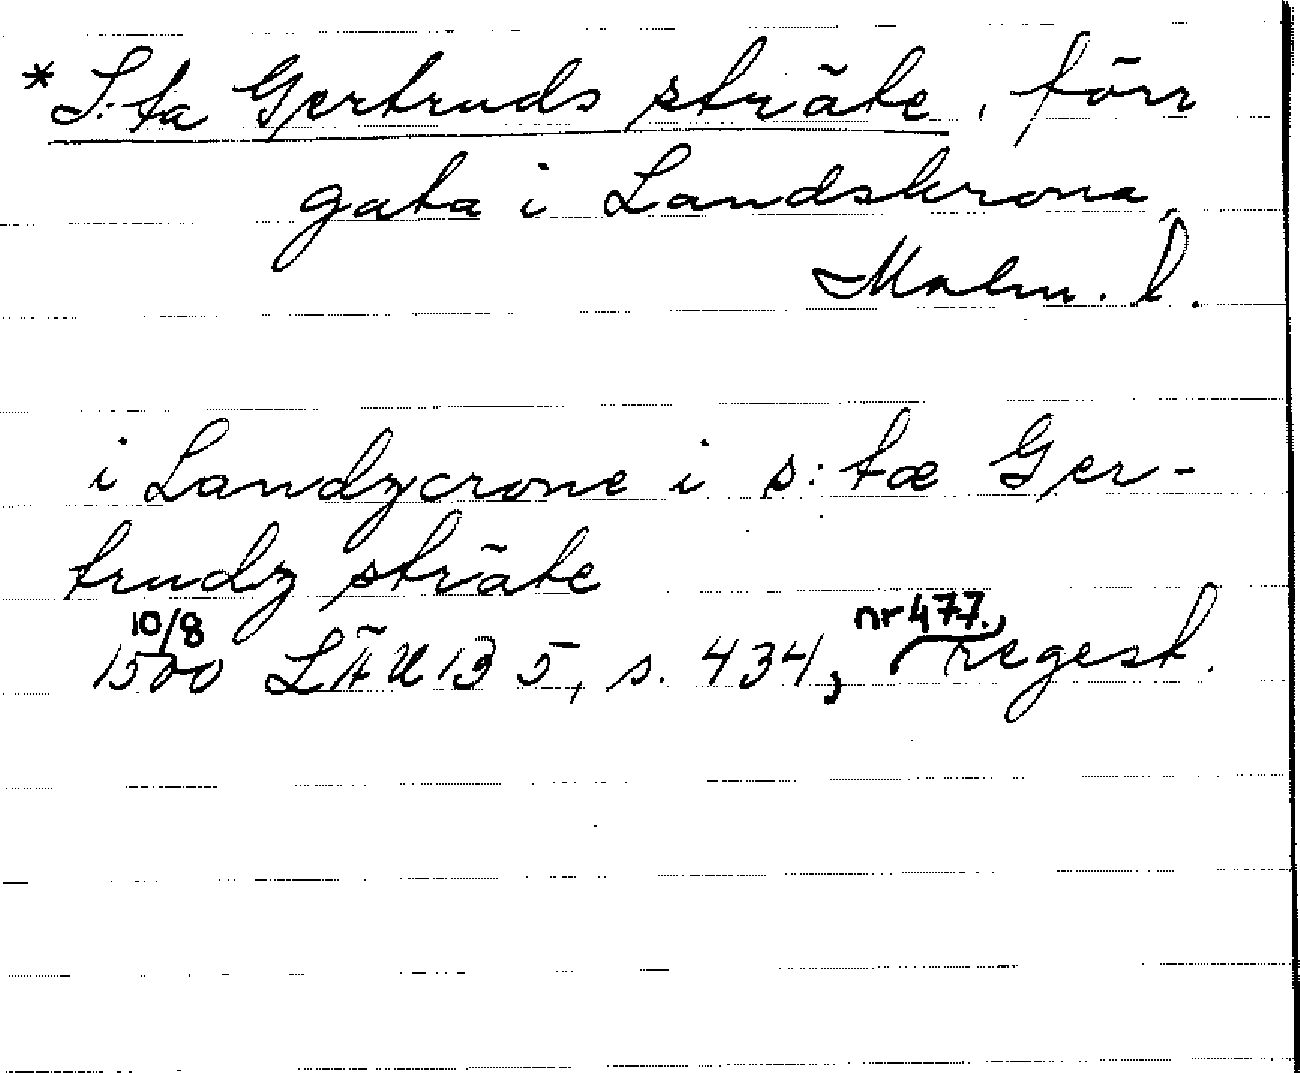 * S:ta Gertruds sträte, förr
gata i Landskrona,
Malm. l.
i Landzcrone i s:tæ Ger-
trudz sträte
10/8
1500 LÄUB 5, s. 434, nr 477., regest.